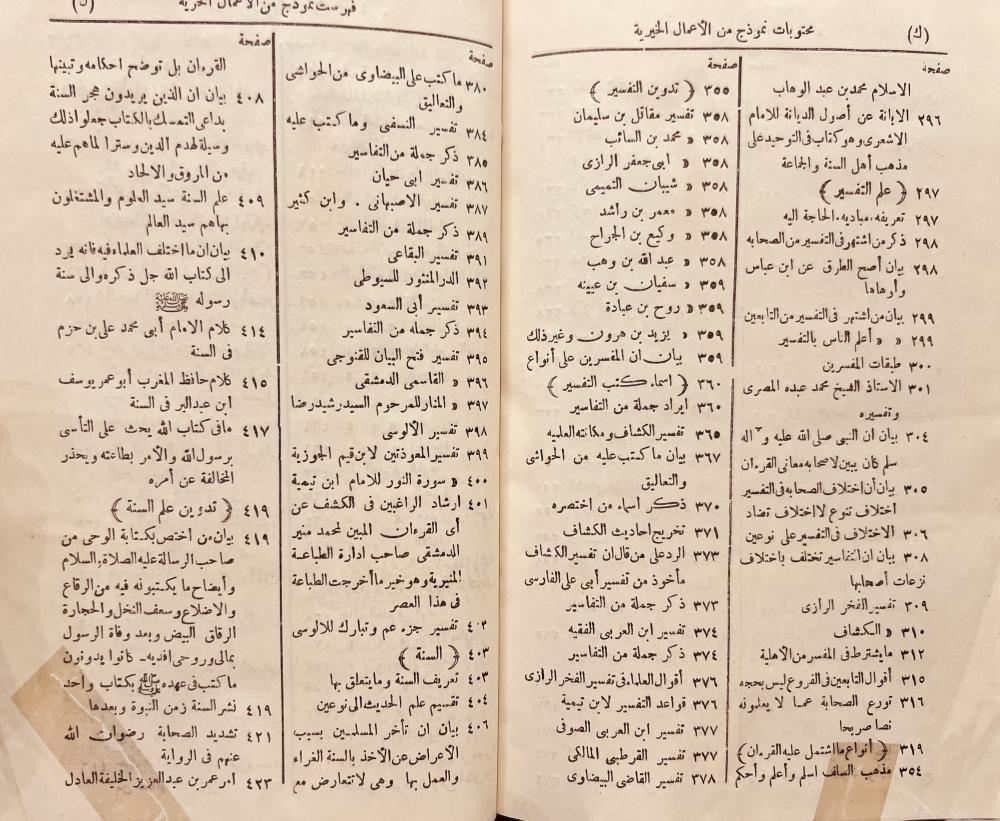 (ك)
محتويات نموذج من الأعمال الخيرية
صفحة
الاسلام محمد بن عبد الوهاب
٢٩٦ الابانة عن أصول الديانة للامام
الاشعرى وهو كتاب فى التوحيد على
مذهب أهل السنة والجماعة
٢٩٧ ﴿ علم التفسير ﴾
٢٩٧ تعريفه، مباديه، الحاجة اليه
٢٩٨ ذكر من اشتهر فى التفسير من الصحابه
٢٩٨ بيان أصح الطرق عن ابن عباس
وأرهاها
٢٩٩ بيان من اشتهر فى التفسير من التابعين
٢٩٩ » » أعلم الناس بالتفسير
٣٠٠ طبقات المفسرين
٣٠١ الاستاذ الشيخ محمد عبده المصرى
وتفسيره
٣٠٤ بيان ان النبى صلى الله عليه وآله
سلم كان يبين لاصحابه معانى القرءان
٣٠٥ بيان أن اختلاف الصحابه فى التفسير
اختلاف تنوع لا اختلاف تضاد
٣٠٦ الاختلاف فى التفسير على نوعين
٣٠٨ بيان ان التفاسير تختلف باختلاف
نزعات أصحابها
٣٠٩ تفسير الفخر الرازى
٣١٠ » الكشاف
٣١٢ ما يشترط فى المفسر من الأهلية
٣١٥ أقوال التابعين فى الفروع ليس بحجه
٣١٦ تورع الصحابة عما لا يعلمونه
نصا صريحا
٣١٩ ﴿ أنواع ما اشتمل عليه القرءان ﴾
٣٥٤ مذهب السلف اسلم وأعلم وأحكم
صفحة
٣٥٥ ﴿ تدوين التفسير ﴾
٣٥٨ تفسير مقاتل بن سليمان
٣٥٨ » محمد بن السائب
٣٥٨ » ابى جعفر الرازى
٣٥٨ » شيبان التميمى
٣٥٨ » معمر بن راشد
٣٥٨ » وكيع بن الجراح
٣٥٨ » عبد الله بن وهب
٣٥٩ » سفيان بن عيينه
٣٥٩ » روح بن عبادة
٣٥٩ » يزيد بن هرون وغير ذلك
٣٥٩ بيان ان المفسرين على أنواع
٣٦٠ ﴿ اسماء كتب التفسير ﴾
٣٦٠ ايراد جملة من التفاسير
٣٦٥ تفسير الكشاف ومكانته العلميه
٣٦٧ بيان ما كتب عليه من الحواشى
والتعاليق
٣٧٠ ذكر اسماء من اختصره
٣٧١ تخريج احاديث الكشاف
٣٧٣ الرد على من قال ان تفسير الكشاف
مأخوذ من تفسير أبى على الفارسى
٣٧٣ ذكر جملة من التفاسير
٣٧٤ تفسير ابن العربى الفقيه
٣٧٤ ذكر جملة من التفاسير
٣٧٦ أقوال العلماء فى تفسير الفخر الرازى
٣٧٦ قواعد التفسير لابن تيمية
٣٧٧ تفسير ابن العربى الصوفى
٣٧٧ تفسير القرطبى المالكى
٣٧٨ تفسير القاضى البيضاوى
فهرست نموذج من الأعمال الخيرية
صفحة
٣٨٠ ما كتب على البيضاوى من الحواشى
والتعاليق
٣٨٤ تفسير النسفى وما كتب عليه
٣٨٥ ذكر جملة من التفاسير
٣٨٦ تفسير ابى حيان
٣٨٧ تفسير الاصبهانى . وابن كثير
٣٨٩ ذكر جملة من التفاسير
٣٩١ تفسير البقاعى
٣٩٢ الدر المنثور للسيوطى
٣٩٣ تفسير أبى السعود
٣٩٤ ذكر جمله من التفاسير
٣٩٥ تفسير فتح البيان للقنوجى
٣٩٦ » القاسمى الدمشقى
٣٩٧ » المنار للمرحوم السيد رشيد رضا
٣٩٨ تفسير الآلوسى
٣٩٩ تفسير المعوذتين لابن قيم الجوزية
٤٠٠ » سورة النور للامام ابن تيمية
٤٠١ ارشاد الراغبين فى الكشف عن
أى القرءان المبين لمحمد منير
الدمشقى صاحب ادارة الطباعة
المنيرية وهو خير ما أخرجت الطباعة
فى هذا العصر
٤٠٢ تفسير جزء عم وتبارك للالوسى
٤٠٣ ﴿ السنة ﴾
٤٠٣ تعريف السنة وما يتعلق بها
٤٠٤ تقسيم علم الحديث الى نوعين
٤٠٦ بيان ان تأخر المسلمين بسبب
الاعراض عن الأخذ بالسنة الغراء
والعمل بها وهى لا تتعارض مع
صفحة
القرءان بل توضح احكامه وتبينها
٤٠٨ بيان ان الذين يريدون هجر السنة
بداعى التمسك بالكتاب جعلوا ذلك
وسيلة لهدم الدين وسترا لما هم عليه
من المروق والالحاد
٤٠٩ علم السنة سيد العلوم والمشتغلون
بها هم سيد العالم
٤١٠ بيان ان ما اختلف العلماء فيه فانه يرد
الى كتاب الله جل ذكره والى سنة
رسوله ﷺ
٤١٤ كلام الامام أبى محمد على بن حزم
فى السنة
٤١٥ كلام حافظ المغرب أبو عمر يوسف
ابن عبد البر فى السنة
٤١٧ ما فى كتاب الله يحث على التأسى
برسول الله والأمر بطاعته ويحذر
المخالفة عن أمره
٤١٩ ﴿ تدوين علم السنة ﴾
٤١٩ بيان من اختص بكتابة الوحى من
صاحب الرسالة عليه الصلاة والسلام
وأيضاح ما يكتبونه فيه من الرقاع
والاضلاع وسعف النخل والحجارة
الرقاق البيض وبعد وفاة الرسول
بمالى وروحى افديه - كانوا يدونون
ما كتب فى عهده ﷺ بكتاب واحد
٤١٩ نشر السنة زمن النبوة وبعدها
٤٢١ تشديد الصحابة رضوان الله
عنهم فى الرواية
٤٢٣ أمر عمر بن عبد العزيز الخليفة العادل